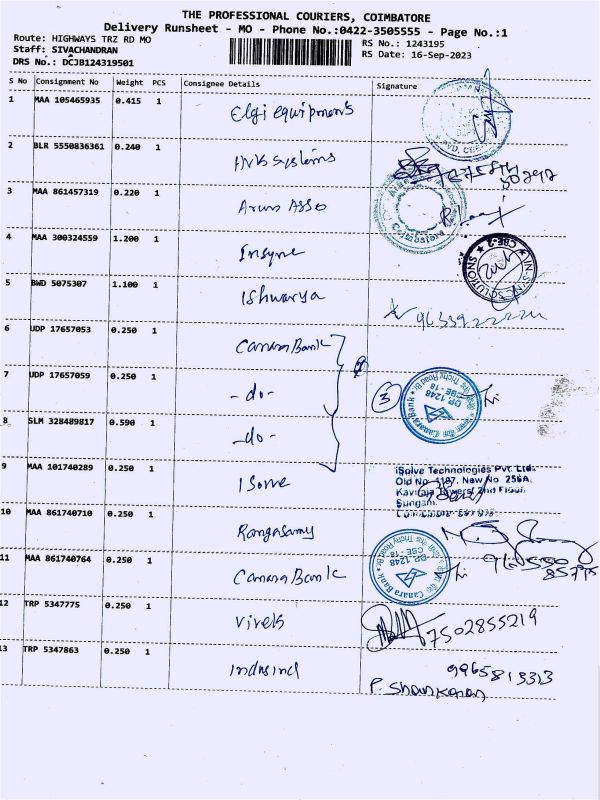 THE PROFESSIONAL COURIERS, COIMBATORE
Delivery Runsheet - MO - Phone No.:0422-3505555 - Page No.:1
Route: HIGHWAYS TRZ RD MO
RS No.: 1243195
Staff: SIVACHANDRAN
RS Date: 16-Sep-2023
DRS No.: DCJB124319501
S No Consignment No Weight PCS Consignee Details Signature
1 MAA 105465935 0.415 1 Elgi equipments
2 BLR 5550836361 0.240 1 Systems
3 MAA 861457319 0.220 1 Arun Asso
4 MAA 300324559 1.200 1 Insyne
5 BWD 5075307 1.100 1 Ishwarya
6 UDP 17657053 0.250 1 Canara Bank
7 UDP 17657059 0.250 1 -do- 3
DP 1248
CBE - 18
Canara Bank
8 SLM 328489817 0.590 1 -do-
9 MAA 101740289 0.250 1 ISolve
iSolve Technologies Pvt. Ltd.
Old No 1187, New No 256A,
Kavitaja Towers, 2nd Floor,
Sungam,
10 MAA 861740710 0.250 1 Rangasamy
11 MAA 861740764 0.250 1 Canara Bank
DP 1248
CBE - 18
Canara Bank
12 TRP 5347775 0.250 1 Viveks 7502855219
13 TRP 5347863 0.250 1 Indusind 9965813313
P. Shankaran